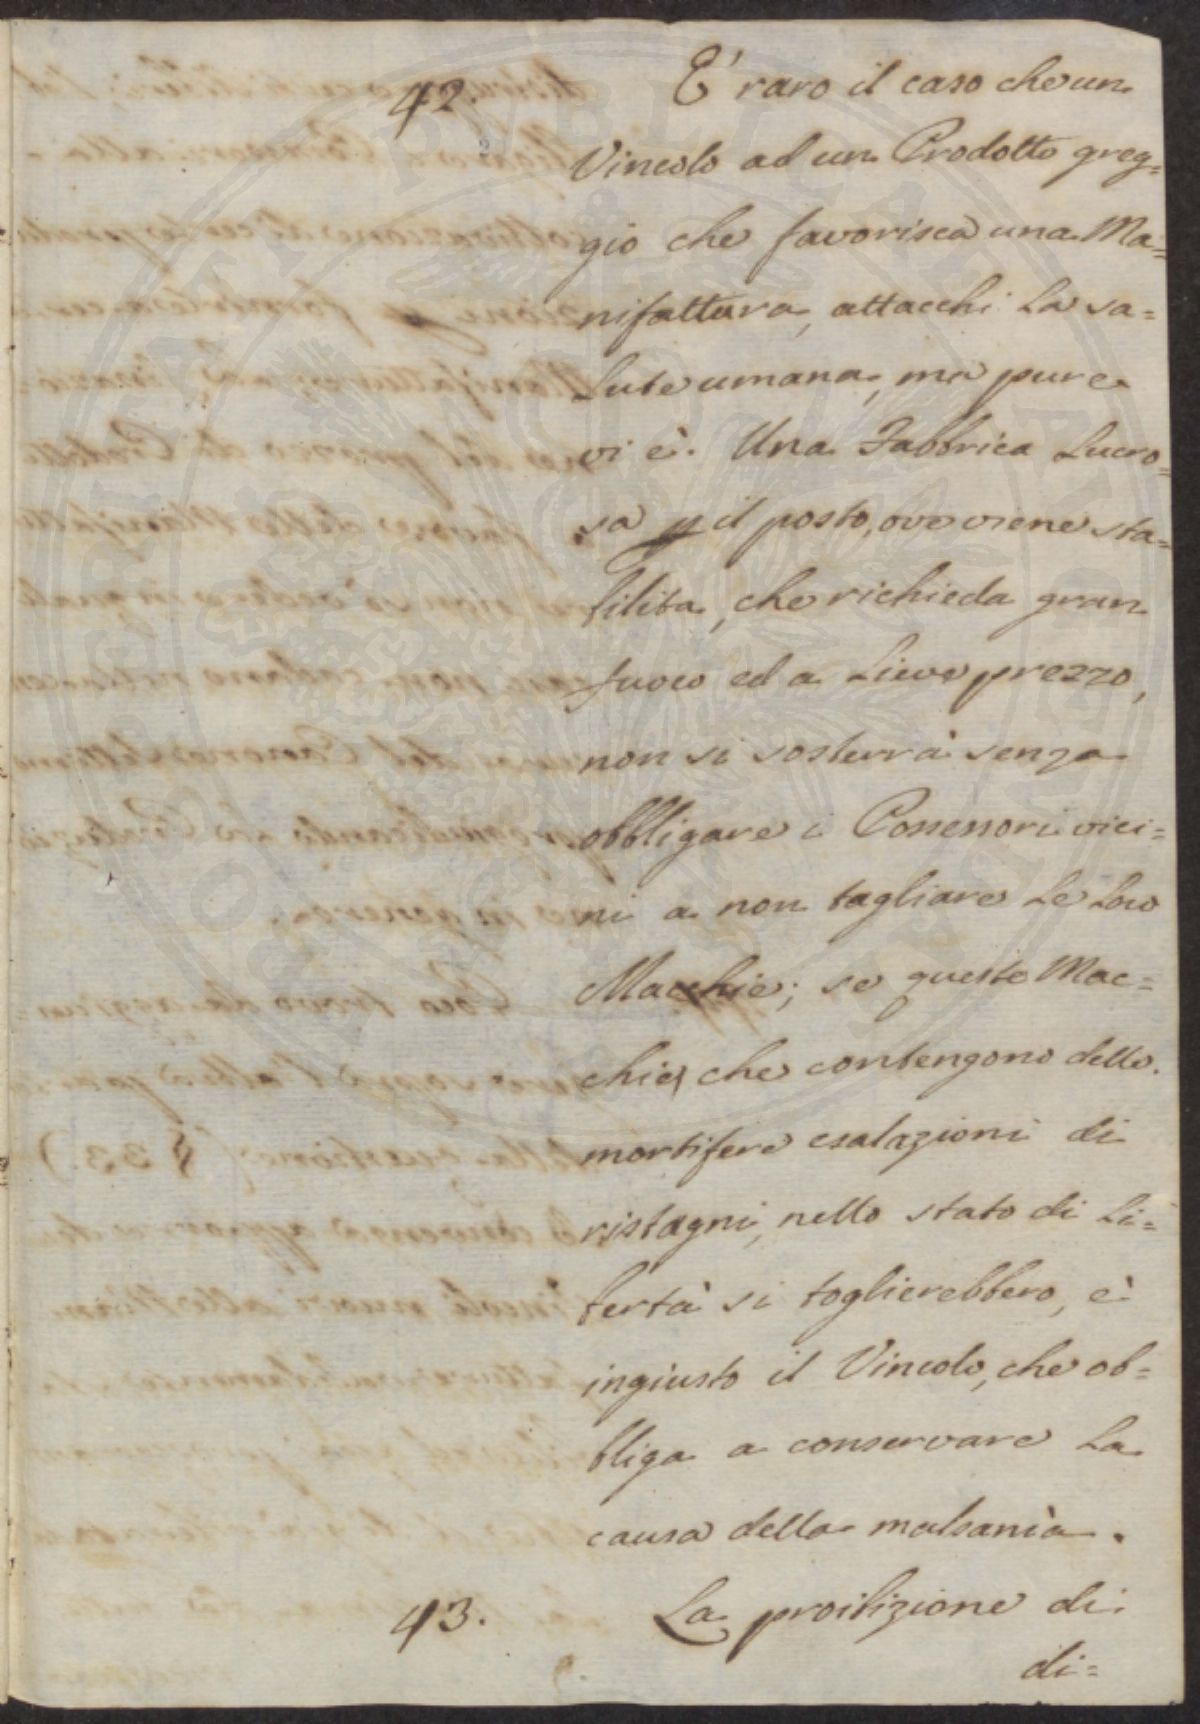 42. E' raro il caso che un
Vincolo ad un Prodotto greg=
gio che favorisca una Ma=
nifattura, attacchi la sa=
lute umana, ma pure
vi è. Una Fabbrica lucro=
sa p il posto, ove viene sta=
bilita, che richieda gran
fuoco ed a lieve prezzo,
non si sosterrà senza
obbligare i Possessori vici=
ni a non tagliare le loro
Macchie; se queste Mac=
chie, che contengono delle
mortifere esalazioni di
ristagni, nello stato di li=
bertà si toglierebbero, è
ingiusto il Vincolo, che ob=
bliga a conservare la
causa della malsanìa.
43. La proibizione di
di=